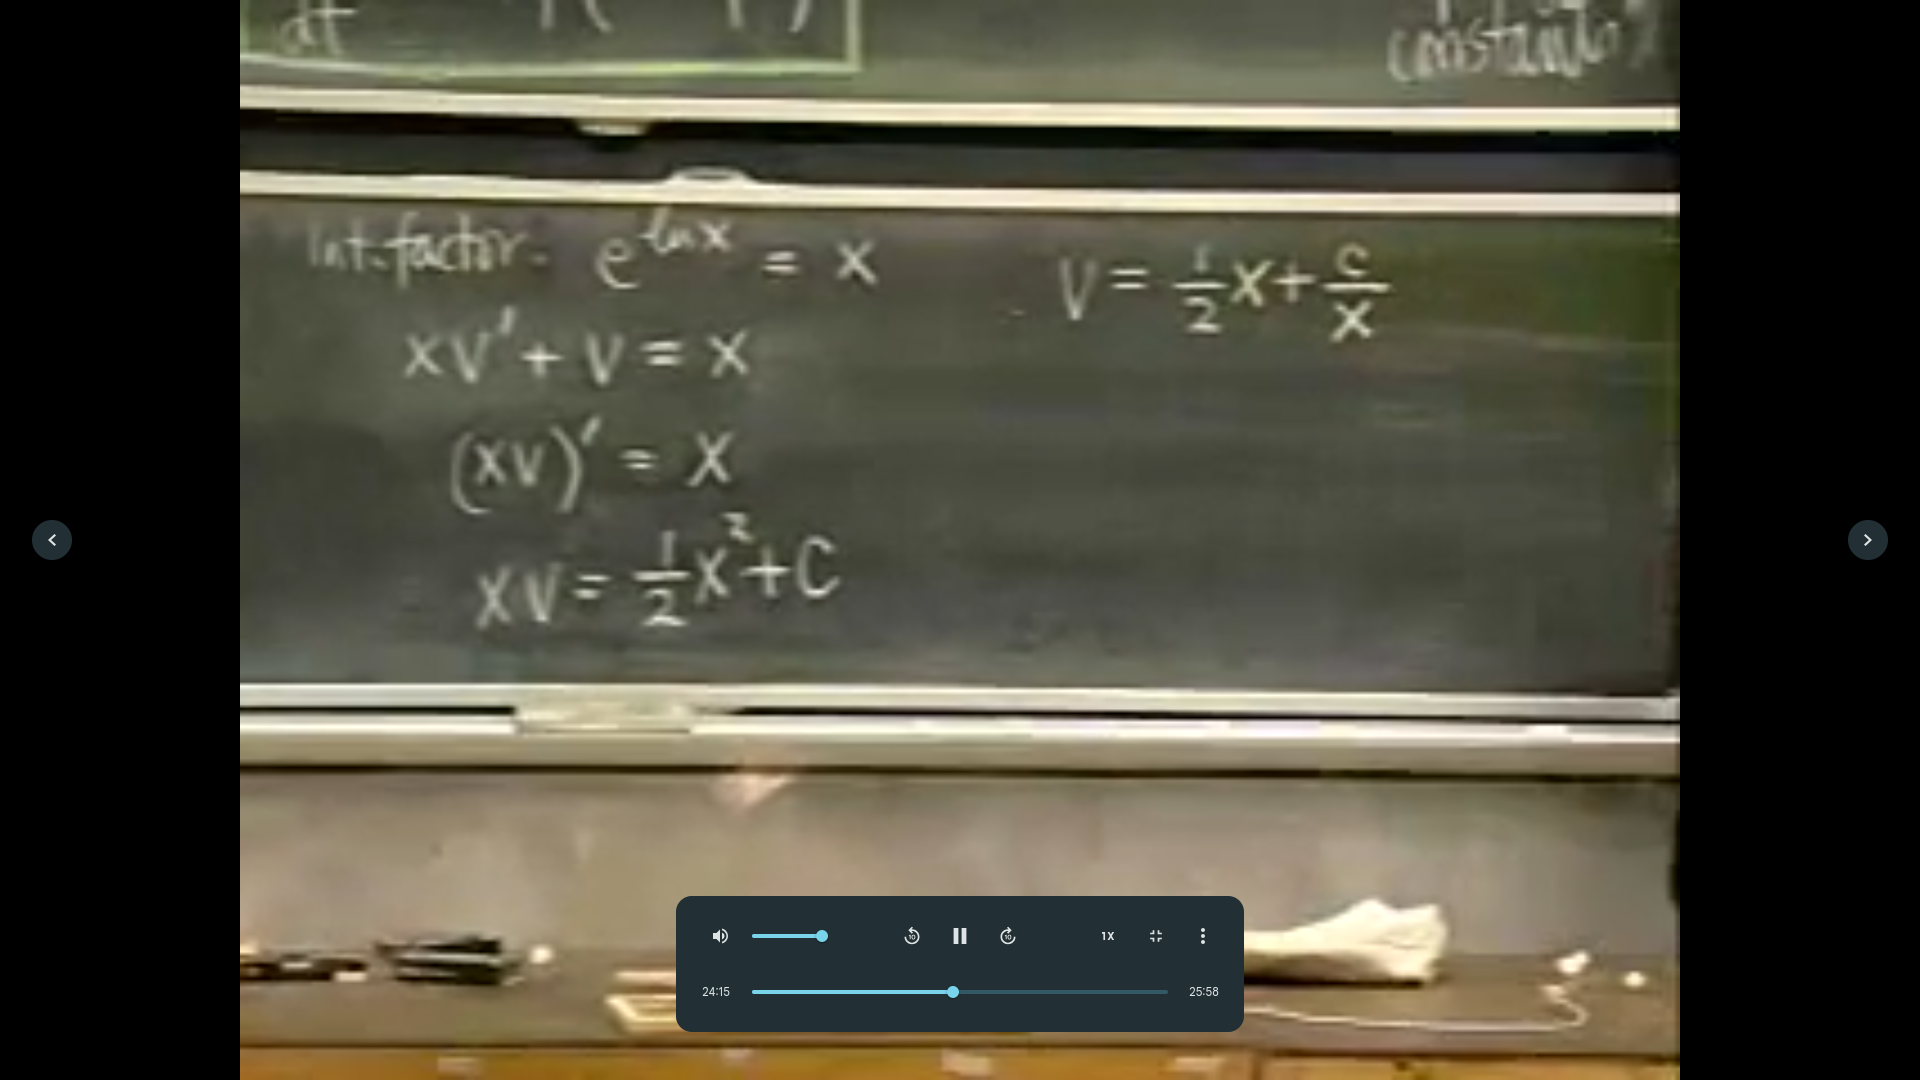 dt
constants
Int. factor - e^{ln x} = x
xv' + v = x
(xv)' = x
xv = \frac{1}{2}x^2 + C
v = \frac{1}{2}x + \frac{c}{x}
10
10
1X
24:15
25:58